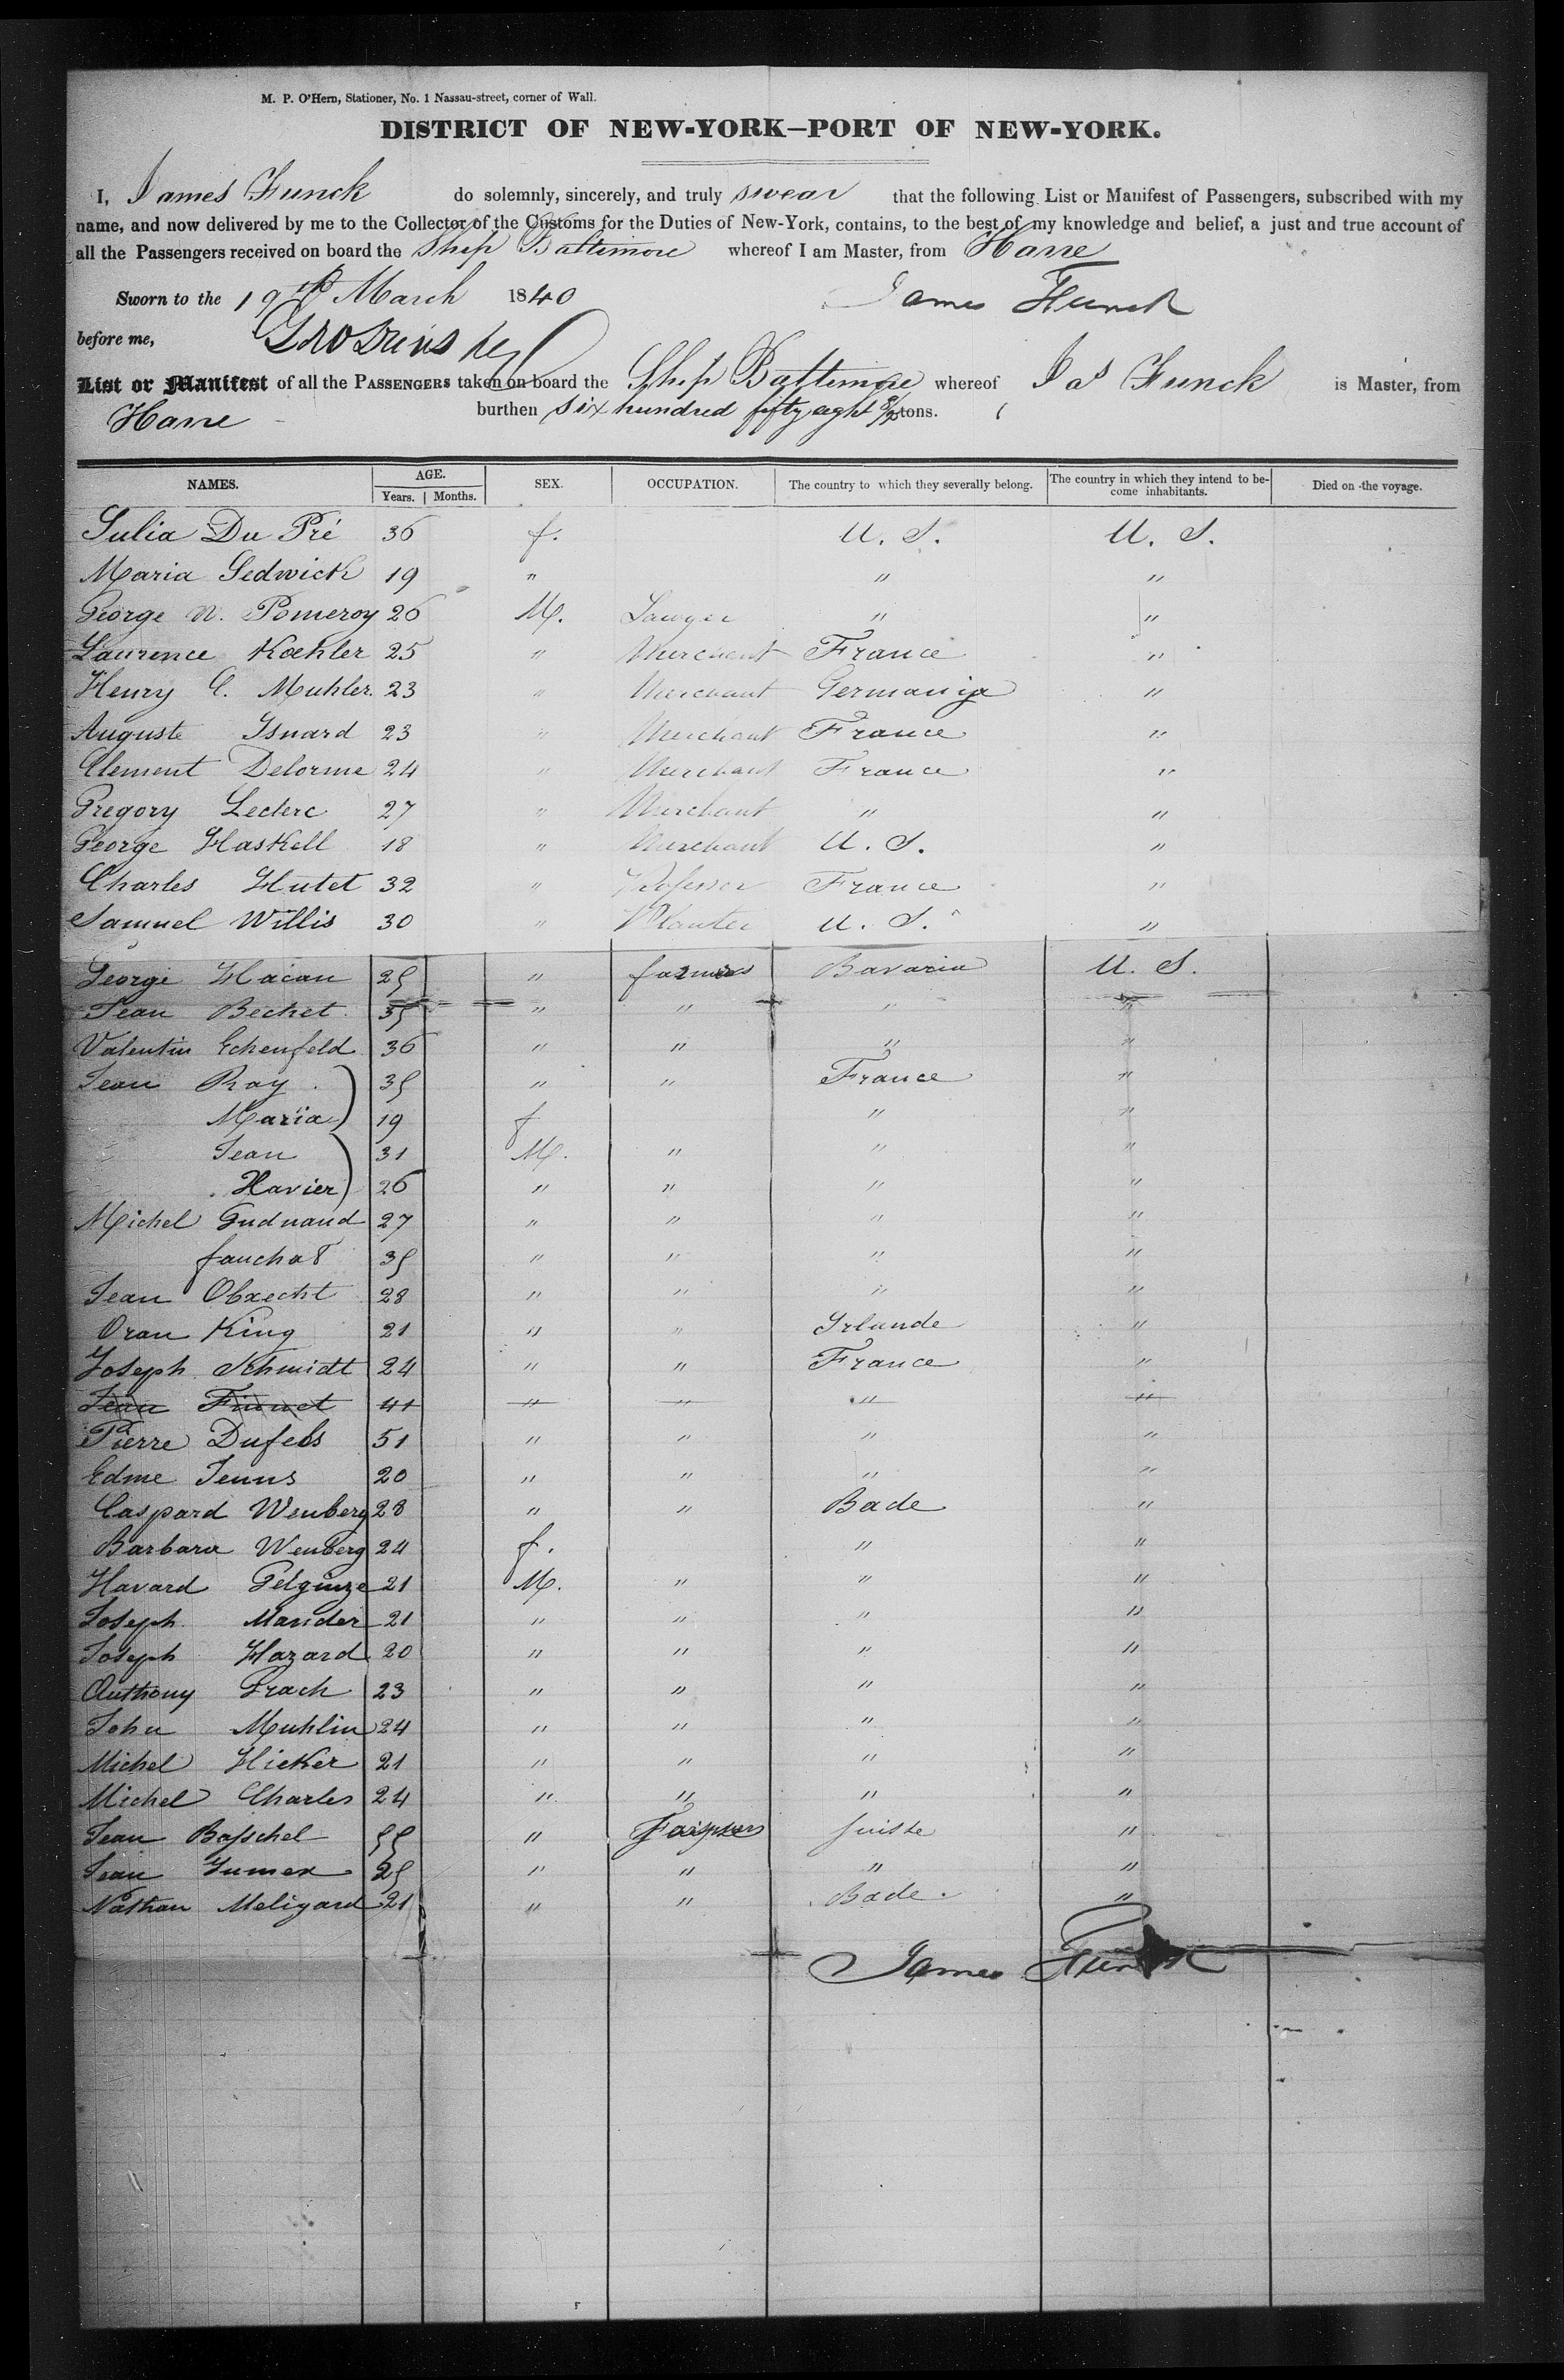 M. P. O'Hern, Stationer, No. 1 Nassau-street, corner of Wall.
DISTRICT OF NEW-YORK—PORT OF NEW-YORK.
I, James Funck do solemnly, sincerely, and truly swear that the following List or Manifest of Passengers, subscribed with my
name, and now delivered by me to the Collector of the Customs for the Duties of New-York, contains, to the best of my knowledge and belief, a just and true account of
all the Passengers received on board the Ship Baltimore whereof I am Master, from Havre
Sworn to the 19th March 1840 James Funck
before me,
List or Manifest of all the PASSENGERS taken on board the Ship Baltimore whereof Jas Funck is Master, from
Havre burthen six hundred fifty eight tons.
NAMES. AGE. Years. Months. SEX. OCCUPATION. The country to which they severally belong. The country in which they intend to become inhabitants. Died on the voyage.
Julia Du Pré 36 f. U. S. U. S.
Maria Sedwick 19 " " "
George N. Pomeroy 26 M. Lawyer " "
Laurence Koehler 25 " Merchant France "
Henry C. Muhler. 23 " Merchant "
Auguste Isnard 23 " Merchant France "
Clement Delorme 24 " Merchant France "
Gregory Leclerc 27 " Merchant " "
George Haskell 18 " Merchant U. S. "
Charles Hutet 32 " Professor France "
Samuel Willis 30 " Planter U. S. "
George Hacan 25 " farmers Bavaria U. S.
Jean Bechet 35 " " " "
Valentin Echenfeld 36 " " " "
Jean Ray 35 " " France "
Maria 19 f " "
Jean 31 M. " " "
Xavier 26 " " " "
Michel 27 " " " "
fauchat 35 " " " "
Jean Obrecht 28 " " " "
Oran King 21 " " Irlande "
Joseph Schmidt 24 " " France "
Jean 41 " " " "
Pierre 51 " " " "
Edme 20 " " " "
Caspard Wenberg 28 " " Bade "
Barbara Wenberg 24 f. " "
Havard 21 M. " " "
Joseph Mander 21 " " " "
Joseph Hazard 20 " " " "
Anthony 23 " " " "
John Muhlin 24 " " " "
Michel Hicker 21 " " " "
Michel Charles 24 " " " "
Jean Baſschel 55 " "
Jean 25 " " " "
Nathan Meligard 21 " " Bade. "
James Funck